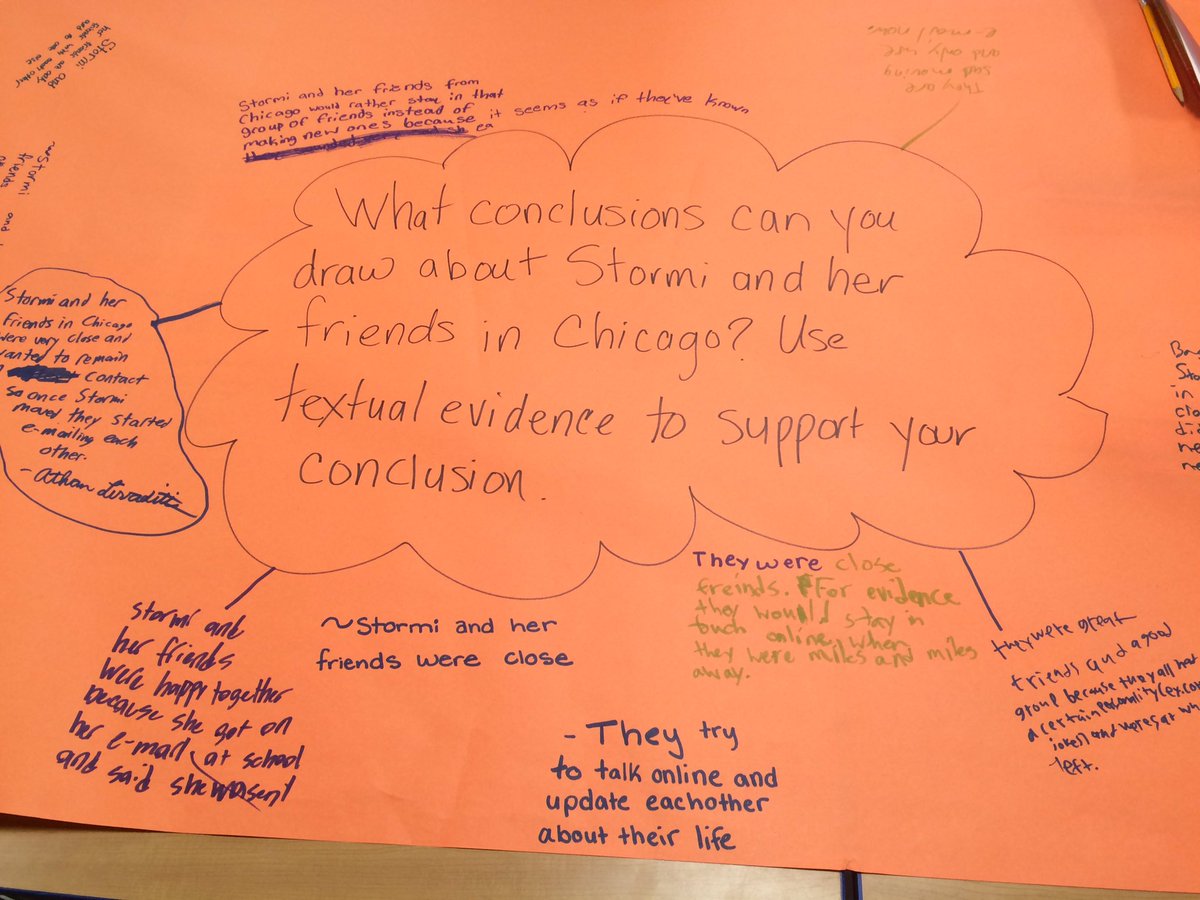 What conclusions can you
draw about Stormi and her
friends in Chicago? Use
textual evidence to support your
conclusion.
Stormi and
her friends all only
talk with each other
and no one else
~Stormi
friends
and
Stormi and her friends from
Chicago would rather stay in that
group of friends instead of
making new ones because it seems as if they've known
They are
sad moving
and only use
e-mail now
Stormi and her
friends in Chicago
were very close and
wanted to remain
contact
so once Stormi
moved they started
e-mailing each
other.
- Athan Livaditis
Stormi and
her friends
were happy together
because she got on
her e-mail at school
and said she wasent
~Stormi and her
friends were close
They were close
freinds. For evidence
they would stay in
touch online, when
they were miles and miles
away.
- They try
to talk online and
update eachother
about their life
they were great
friends and a good
group because they all had
a certain personality (ex.
jokes) and
left.
in
did